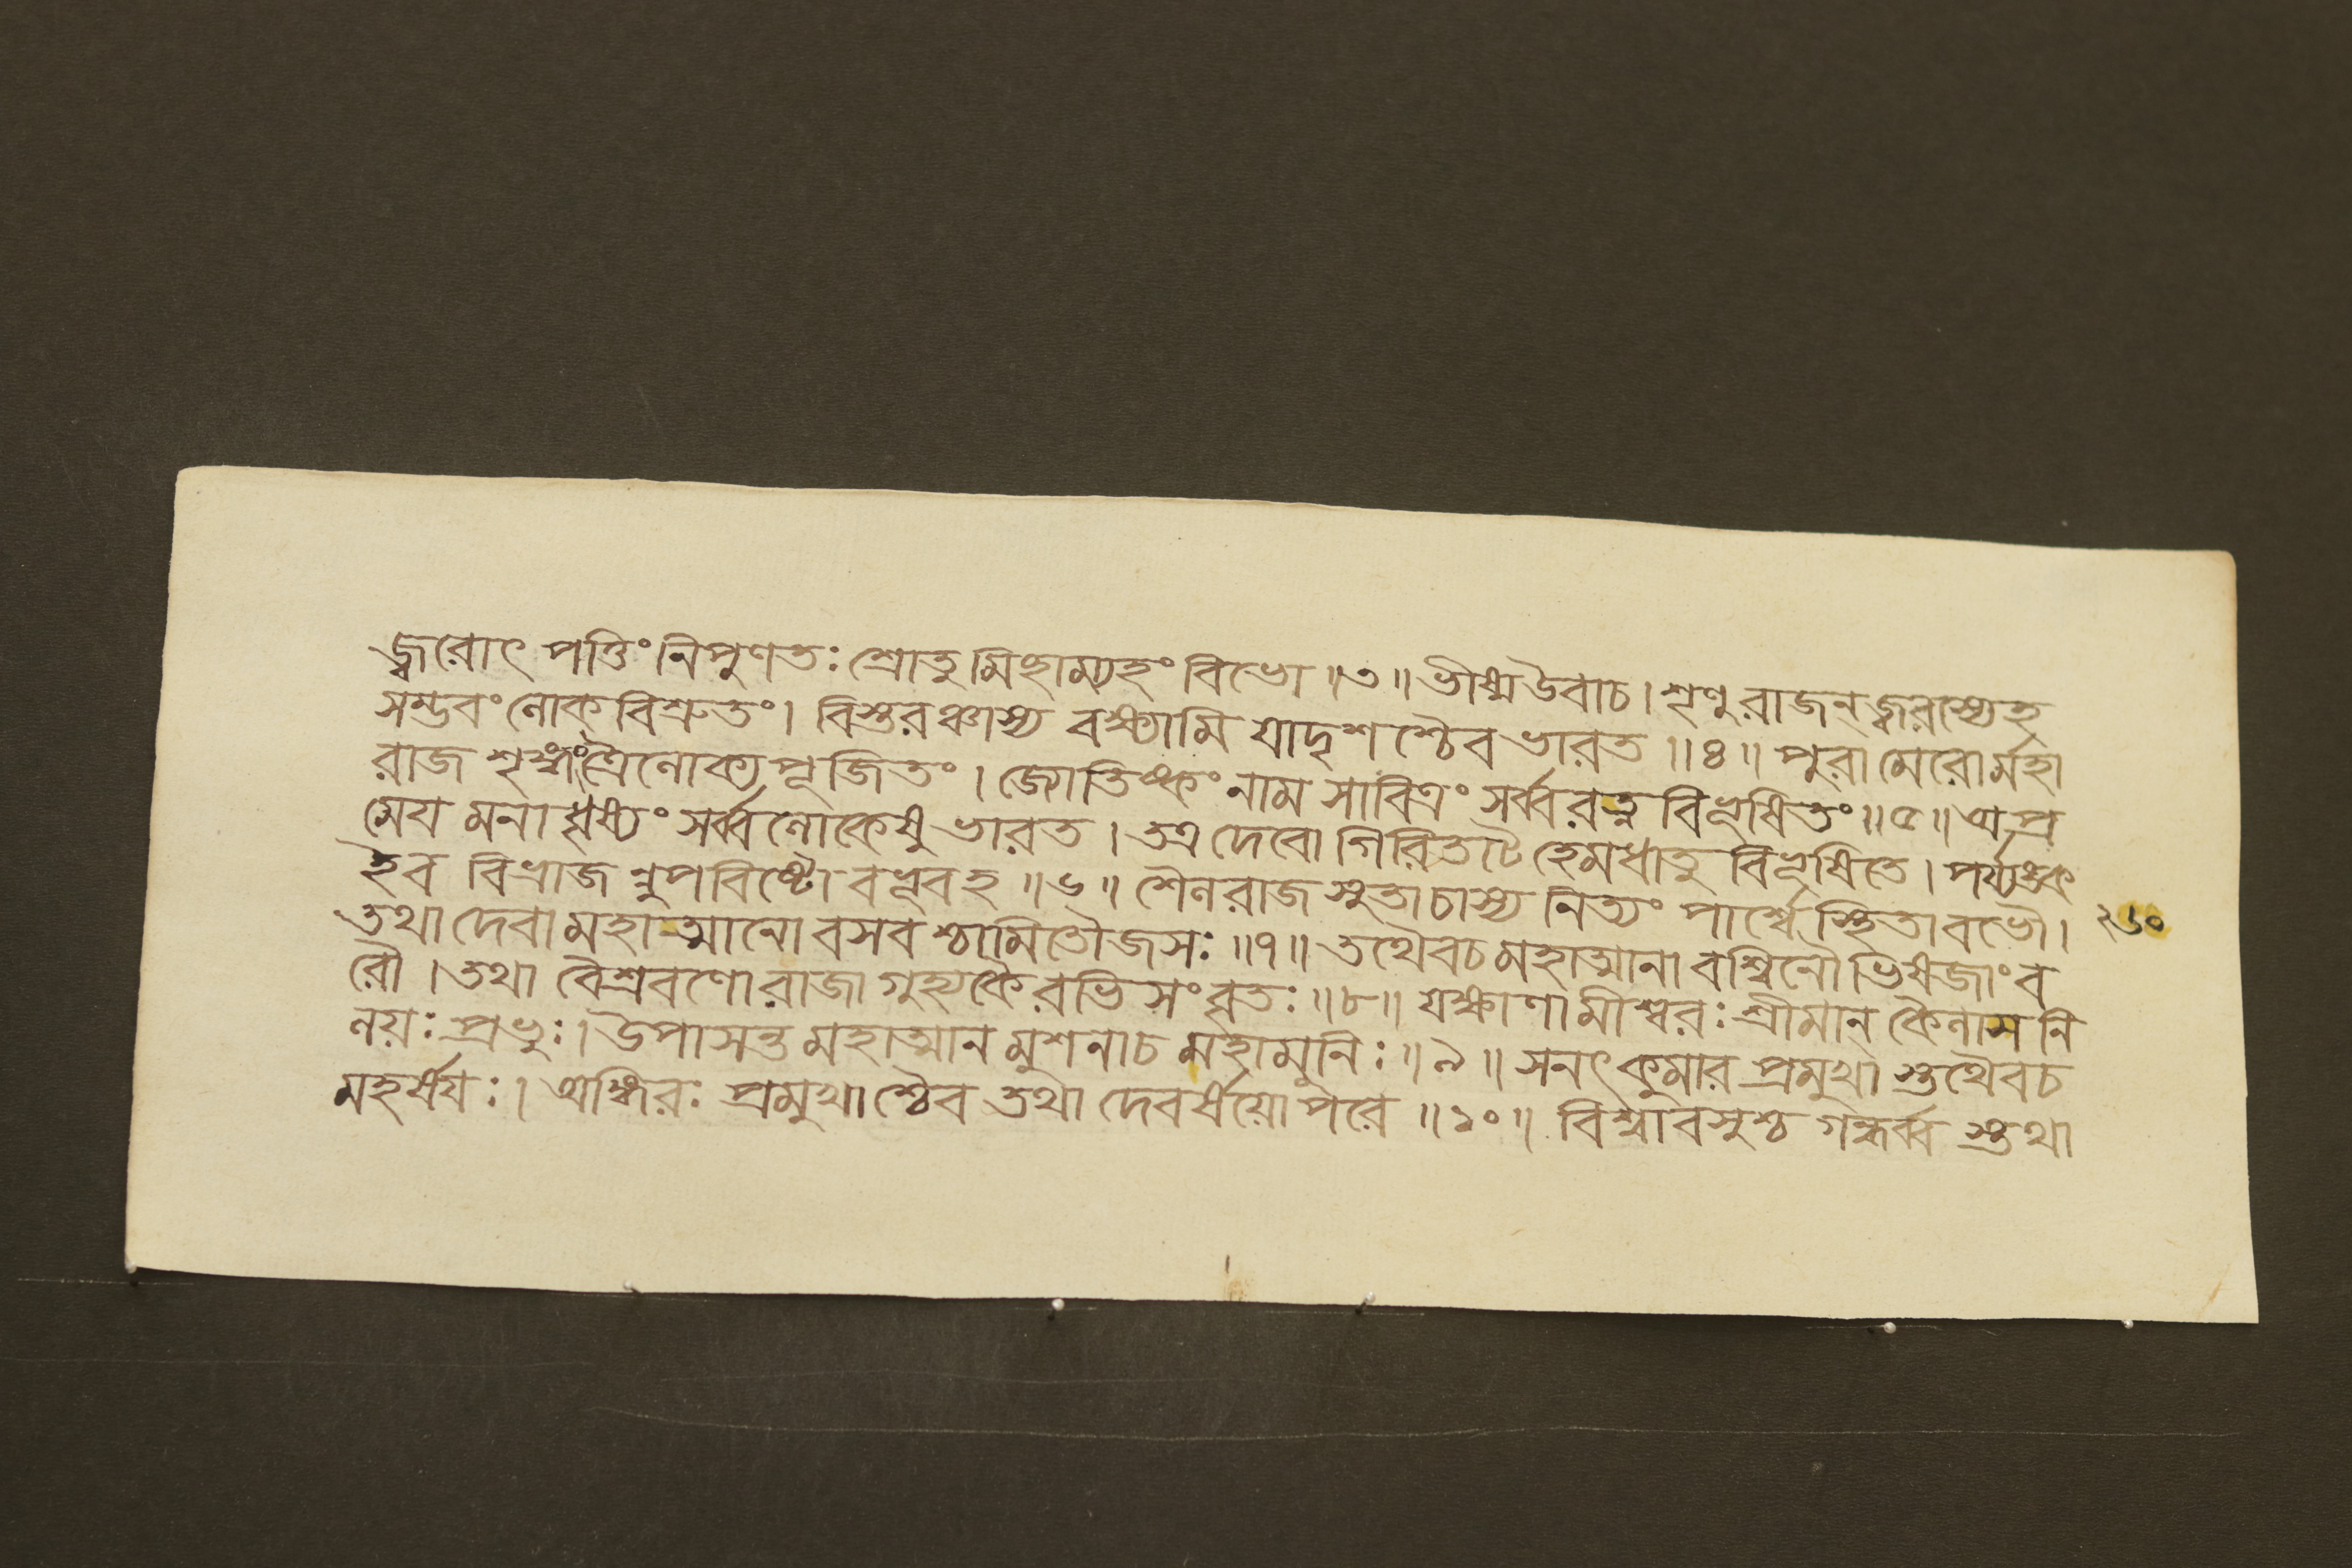 জ্বরোৎপত্তিং নিপুণতঃ শ্রোতুমিচ্ছাম্যহং বিভো ॥৩॥ ভীষ্মউবাচ। শৃণু রাজন্ জ্বরস্যেহ
সম্ভবং লোকবিশ্রুতং। বিস্তরঞ্চাস্য বক্ষ্যামি যাদৃশশ্চৈব ভারত ॥৪॥ পুরা মেরোর্মহা
রাজ শৃঙ্গং ত্রৈলোক্যপূজিতং। জ্যোতিষ্কং নাম সাবিত্রং সর্ব্বরত্ন বিভূষিতং ॥৫॥ অপ্র
মেয মনাধৃষ্যং সর্ব্বলোকেষু ভারত। তত্র দেবো গিরিতটে হেমধাতু বিভূষিতে। পর্য্যঙ্ক
ইব বিভ্রাজন্নুপবিষ্টো বভূবহ ॥৬॥ শৈলরাজ সুতাচাস্য নিত্যং পার্শ্বে স্থিতাবভৌ। ২৬০
তথা দেবা মহাত্মানো বসবশ্চামিতৌজসঃ ॥৭॥ তথৈবচ মহাত্মানা বশ্বিনৌ ভিষজাং ব
রৌ। তথা বৈশ্রবণো রাজা গুহ্যকৈ রভিসংবৃতঃ ॥৮॥ যক্ষাণামীশ্বরঃ শ্রীমান্ কৈলাস নি
লয়ঃ প্রভুঃ। উপাসন্ত মহাত্মান মুশনাচ মহামুনিঃ ॥৯॥ সনৎকুমার প্রমুখা স্তথৈবচ
মহর্ষযঃ। অঙ্গিরঃ প্রমুখাশ্চৈব তথা দেবর্ষয়োপরে ॥১০॥ বিশ্বাবসুশ্চ গন্ধর্ব্ব স্তথা